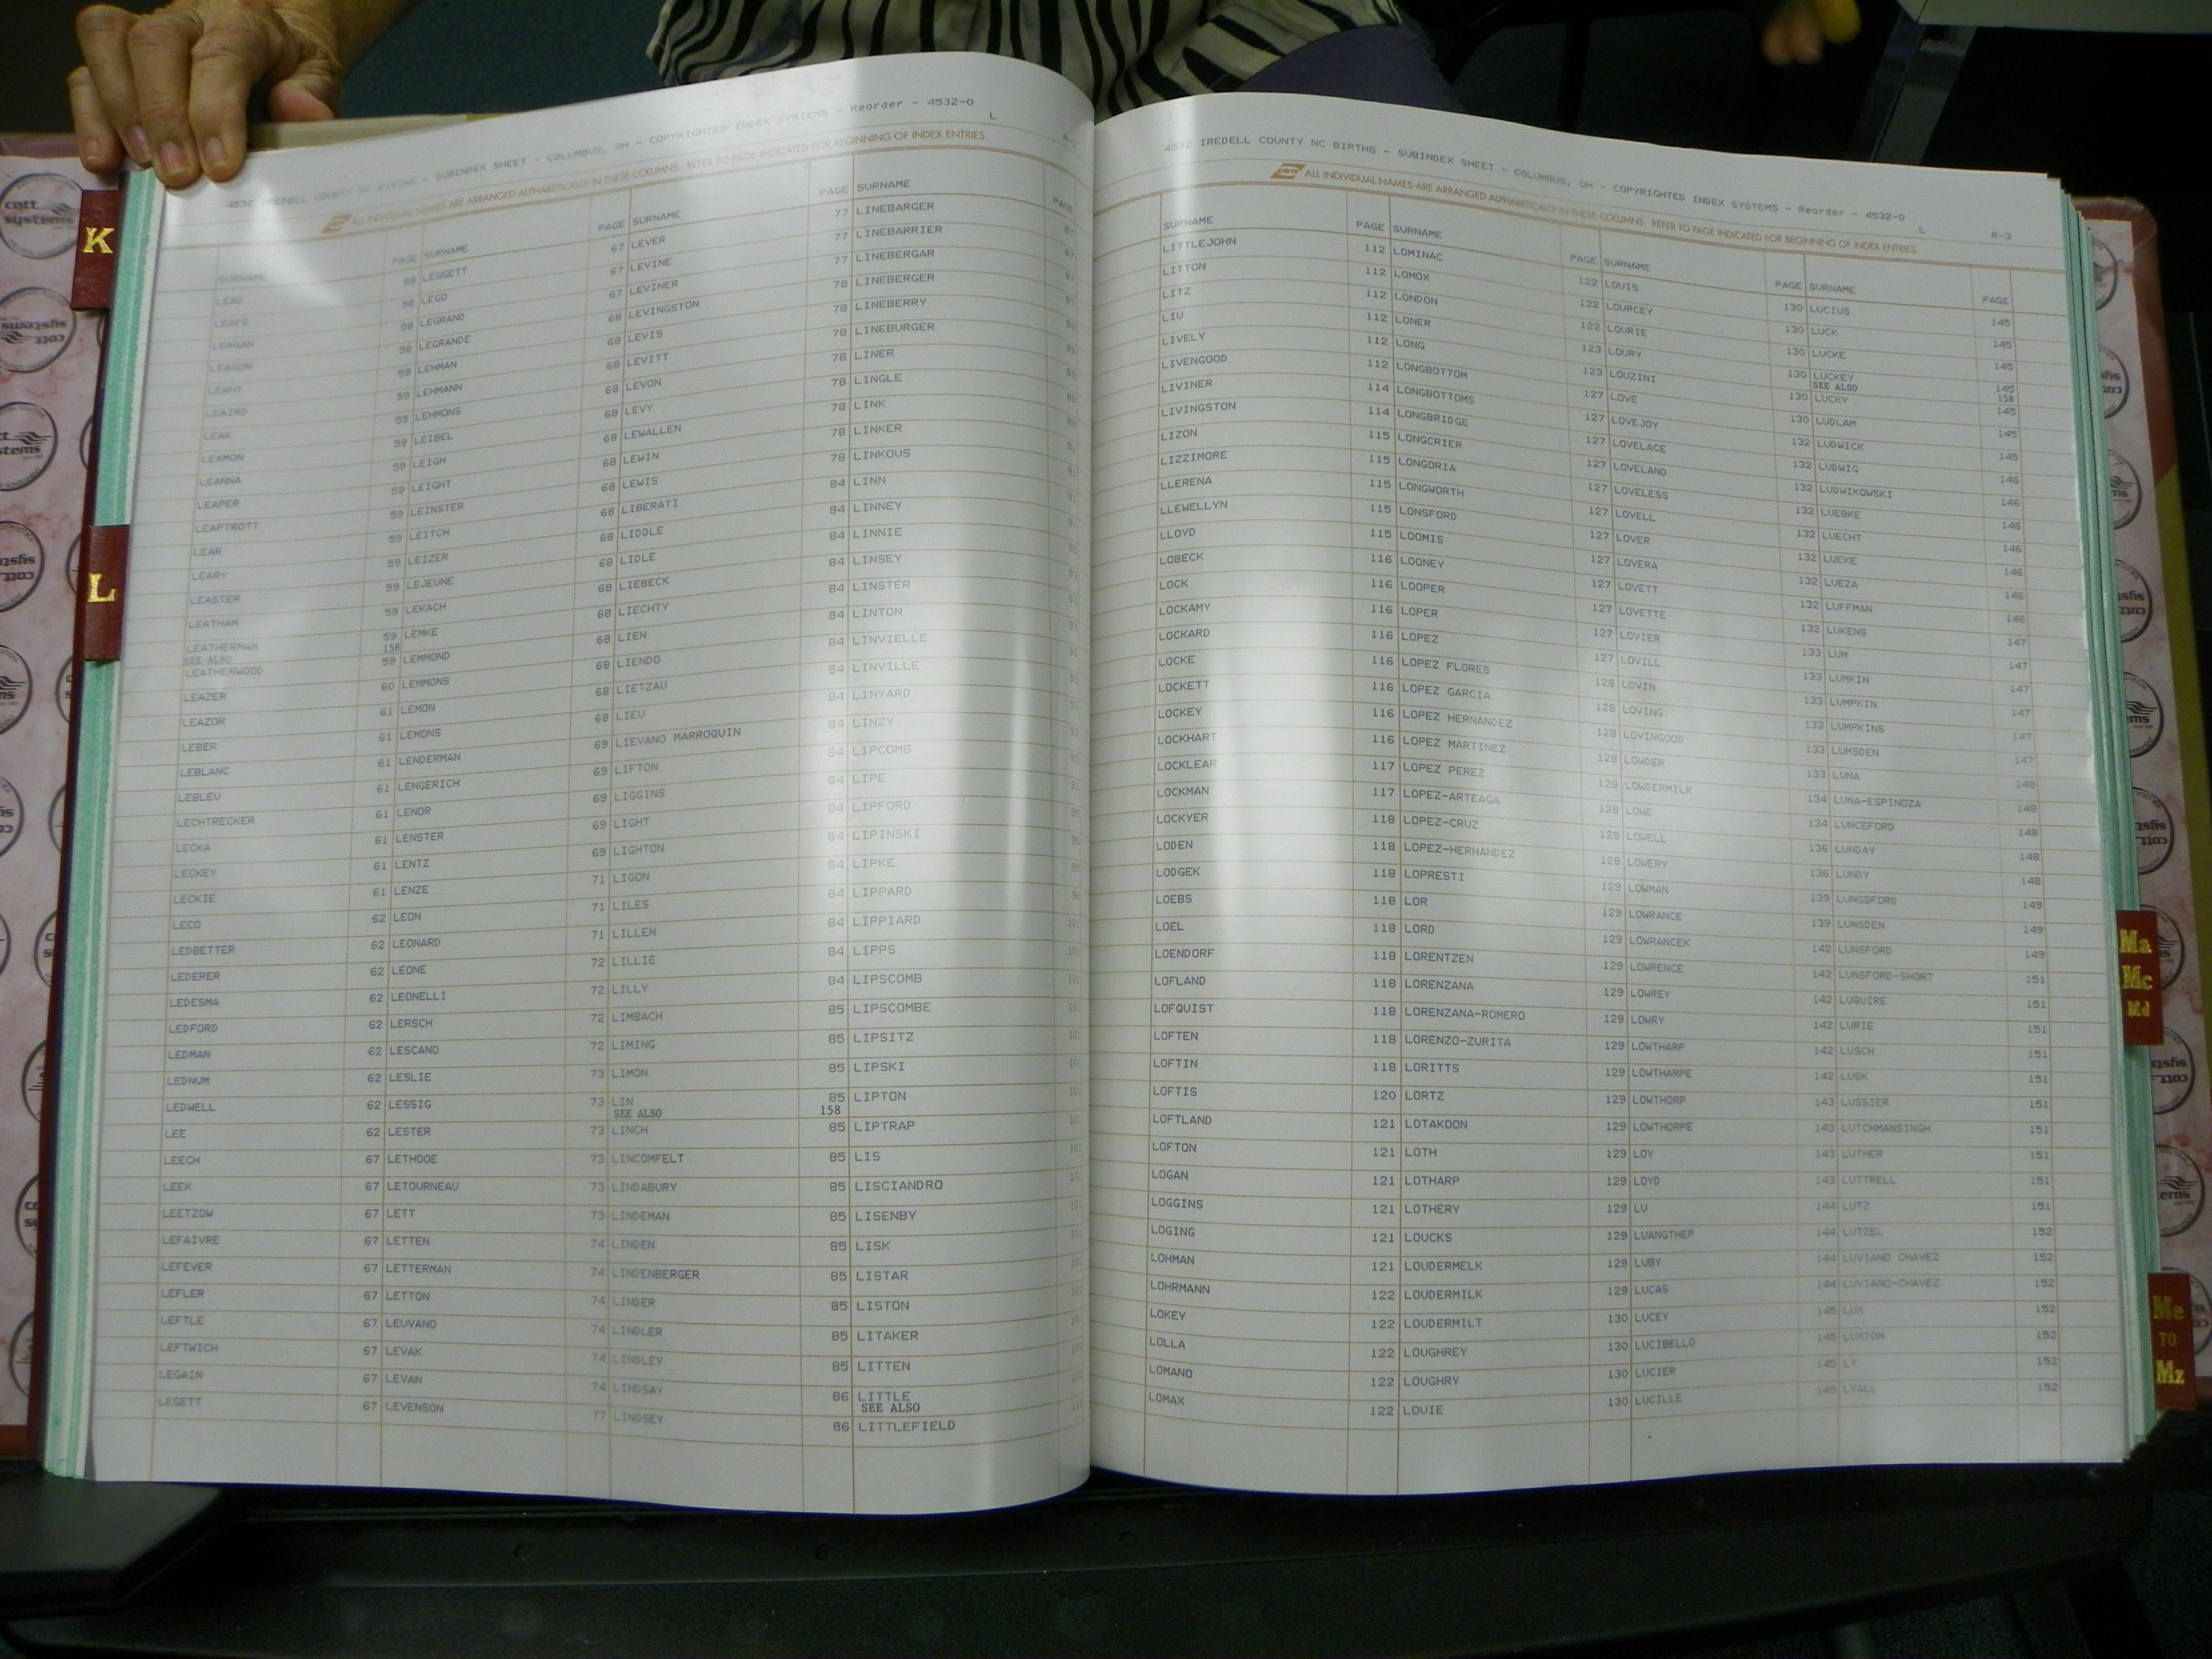 4532 IREDELL COUNTY NC BIRTHS - SUBINDEX SHEET - COLUMBUS, OH - COPYRIGHTED INDEX SYSTEMS - Reorder - 4532-O
L
ALL INDIVIDUAL NAMES ARE ARRANGED ALPHABETICALLY IN THESE COLUMNS. REFER TO PAGE INDICATED FOR BEGINNING OF INDEX ENTRIES.
SURNAME PAGE
LEAD 58
LEAFE 58
LEAGAN 58
LEAGON 58
LEAHY 59
LEAIRD 59
LEAK 59
LEAMON 59
LEANNA 59
LEAPER 59
LEAPTROTT 59
LEAR 59
LEARY 59
LEASTER 59
LEATHAM 59
LEATHERMAN 59
SEE ALSO 158
LEATHERWOOD 59
LEAZER 60
LEAZOR 61
LEBER 61
LEBLANC 61
LEBLEU 61
LECHTRECKER 61
LECKA 61
LECKEY 61
LECKIE 61
LECO 62
LEDBETTER 62
LEDERER 62
LEDESMA 62
LEDFORD 62
LEDMAN 62
LEDNUM 62
LEDWELL 62
LEE 62
LEECH 67
LEEK 67
LEETZOW 67
LEFAIVRE 67
LEFEVER 67
LEFLER 67
LEFTLE 67
LEFTWICH 67
LEGAIN 67
LEGETT 67
SURNAME PAGE
LEGGETT 67
LEGO 67
LEGRAND 67
LEGRANDE 68
LEHMAN 68
LEHMANN 68
LEHMONS 68
LEIBEL 68
LEIGH 68
LEIGHT 68
LEINSTER 68
LEITCH 68
LEIZER 68
LEJEUNE 68
LEKACH 68
LEMKE 68
LEMMOND 68
LEMMONS 68
LEMON 68
LEMONS 68
LENDERMAN 69
LENGERICH 69
LENOR 69
LENSTER 69
LENTZ 69
LENZE 71
LEON 71
LEONARD 71
LEONE 72
LEONELLI 72
LERSCH 72
LESCANO 72
LESLIE 73
LESSIG 73
LESTER 73
LETHOOE 73
LETOURNEAU 73
LETT 73
LETTEN 74
LETTERMAN 74
LETTON 74
LEUVANO 74
LEVAK 74
LEVAN 74
LEVENSON 77
SURNAME PAGE
LEVER 77
LEVINE 77
LEVINER 77
LEVINGSTON 78
LEVIS 78
LEVITT 78
LEVON 78
LEVY 78
LEWALLEN 78
LEWIN 78
LEWIS 78
LIBERATI 84
LIDDLE 84
LIDLE 84
LIEBECK 84
LIECHTY 84
LIEN 84
LIENDO 84
LIETZAU 84
LIEU 84
LIEVANO MARROQUIN 84
LIFTON 84
LIGGINS 84
LIGHT 84
LIGHTON 84
LIGON 84
LILES 84
LILLEN 84
LILLIE 84
LILLY 84
LIMBACH 85
LIMING 85
LIMON 85
LIN 85
SEE ALSO 158
LINCH 85
LINCOMFELT 85
LINDABURY 85
LINDEMAN 85
LINDEN 85
LINDENBERGER 85
LINDER 85
LINDLER 85
LINDLEY 85
LINDSAY 86
LINDSEY 86
SURNAME PAGE
LINEBARGER
LINEBARRIER
LINEBERGAR
LINEBERGER
LINEBERRY
LINEBURGER
LINER
LINGLE
LINK
LINKER
LINKOUS
LINN
LINNEY
LINNIE
LINSEY
LINSTER
LINTON
LINVIELLE
LINVILLE
LINYARD
LINZY
LIPCOMB
LIPE
LIPFORD
LIPINSKI
LIPKE
LIPPARD
LIPPIARD
LIPPS
LIPSCOMB
LIPSCOMBE
LIPSITZ
LIPSKI
LIPTON
LIPTRAP
LIS
LISCIANDRO
LISENBY
LISK
LISTAR
LISTON
LITAKER
LITTEN
LITTLE
SEE ALSO
LITTLEFIELD
4532 IREDELL COUNTY NC BIRTHS - SUBINDEX SHEET - COLUMBUS, OH - COPYRIGHTED INDEX SYSTEMS - Reorder - 4532-O
L R-3
ALL INDIVIDUAL NAMES ARE ARRANGED ALPHABETICALLY IN THESE COLUMNS. REFER TO PAGE INDICATED FOR BEGINNING OF INDEX ENTRIES.
SURNAME PAGE
LITTLEJOHN 112
LITTON 112
LITZ 112
LIU 112
LIVELY 112
LIVENGOOD 112
LIVINER 114
LIVINGSTON 114
LIZON 115
LIZZIMORE 115
LLERENA 115
LLEWELLYN 115
LLOYD 115
LOBECK 116
LOCK 116
LOCKAMY 116
LOCKARD 116
LOCKE 116
LOCKETT 116
LOCKEY 116
LOCKHART 116
LOCKLEAR 117
LOCKMAN 117
LOCKYER 118
LODEN 118
LODGEK 118
LOEBS 118
LOEL 118
LOENDORF 118
LOFLAND 118
LOFQUIST 118
LOFTEN 118
LOFTIN 118
LOFTIS 120
LOFTLAND 121
LOFTON 121
LOGAN 121
LOGGINS 121
LOGING 121
LOHMAN 121
LOHRMANN 122
LOKEY 122
LOLLA 122
LOMANO 122
LOMAX 122
SURNAME PAGE
LOMINAC 122
LOMOX 122
LONDON 122
LONER 123
LONG 123
LONGBOTTOM 127
LONGBOTTOMS 127
LONGBRIDGE 127
LONGCRIER 127
LONGORIA 127
LONGWORTH 127
LONSFORD 127
LOOMIS 127
LOONEY 127
LOOPER 127
LOPER 127
LOPEZ 127
LOPEZ FLORES 128
LOPEZ GARCIA 128
LOPEZ HERNANDEZ 128
LOPEZ MARTINEZ 128
LOPEZ PEREZ 128
LOPEZ-ARTEAGA 128
LOPEZ-CRUZ 128
LOPEZ-HERNANDEZ 128
LOPRESTI 129
LOR 129
LORD 129
LORENTZEN 129
LORENZANA 129
LORENZANA-ROMERO 129
LORENZO-ZURITA 129
LORITTS 129
LORTZ 129
LOTAKOON 129
LOTH 129
LOTHARP 129
LOTHERY 129
LOUCKS 129
LOUDERMELK 129
LOUDERMILK 129
LOUDERMILT 130
LOUGHREY 130
LOUGHRY 130
LOUIE 130
SURNAME PAGE
LOUIS 130
LOURCEY 130
LOURIE 130
LOURY 130
LOUZINI 130
LOVE 130
LOVEJOY 132
LOVELACE 132
LOVELAND 132
LOVELESS 132
LOVELL 132
LOVER 132
LOVERA 132
LOVETT 132
LOVETTE 132
LOVIER 133
LOVILL 133
LOVIN 133
LOVING 133
LOVINGOOD 133
LOWDER 133
LOWDERMILK 134
LOWE 134
LOWELL 136
LOWERY 136
LOWMAN 139
LOWRANCE 139
LOWRANCEK 142
LOWRENCE 142
LOWREY 142
LOWRY 142
LOWTHARP 142
LOWTHARPE 142
LOWTHORP 143
LOWTHORPE 143
LOY 143
LOYD 143
LU 144
LUANGTHEP 144
LUBY 144
LUCAS 144
LUCEY 145
LUCIBELLO 145
LUCIER 145
LUCILLE 145
SURNAME PAGE
LUCIUS 145
LUCK 145
LUCKE 145
LUCKEY 145
SEE ALSO 158
LUCKY 145
LUDLAM 145
LUDWICK 145
LUDWIG 146
LUDWIKOWSKI 146
LUEBKE 146
LUECHT 146
LUEKE 146
LUEZA 146
LUFFMAN 146
LUKENS 147
LUM 147
LUMKIN 147
LUMPKIN 147
LUMPKINS 147
LUMSDEN 147
LUNA 148
LUNA-ESPINOZA 148
LUNCEFORD 148
LUNDAY 148
LUNDY 148
LUNGSFORD 149
LUNSDEN 149
LUNSFORD 149
LUNSFORD-SHORT 151
LUQUIRE 151
LURIE 151
LUSCH 151
LUSK 151
LUSSIER 151
LUTCHMANSINGH 151
LUTHER 151
LUTTRELL 151
LUTZ 151
LUTZEL 152
LUVIANO CHAVEZ 152
LUVIANO-CHAVEZ 152
LUX 152
LUXTON 152
LY 152
LYALL 152
K
L
Ma
Mc
Md
Me
TO
Mz
cott
systems